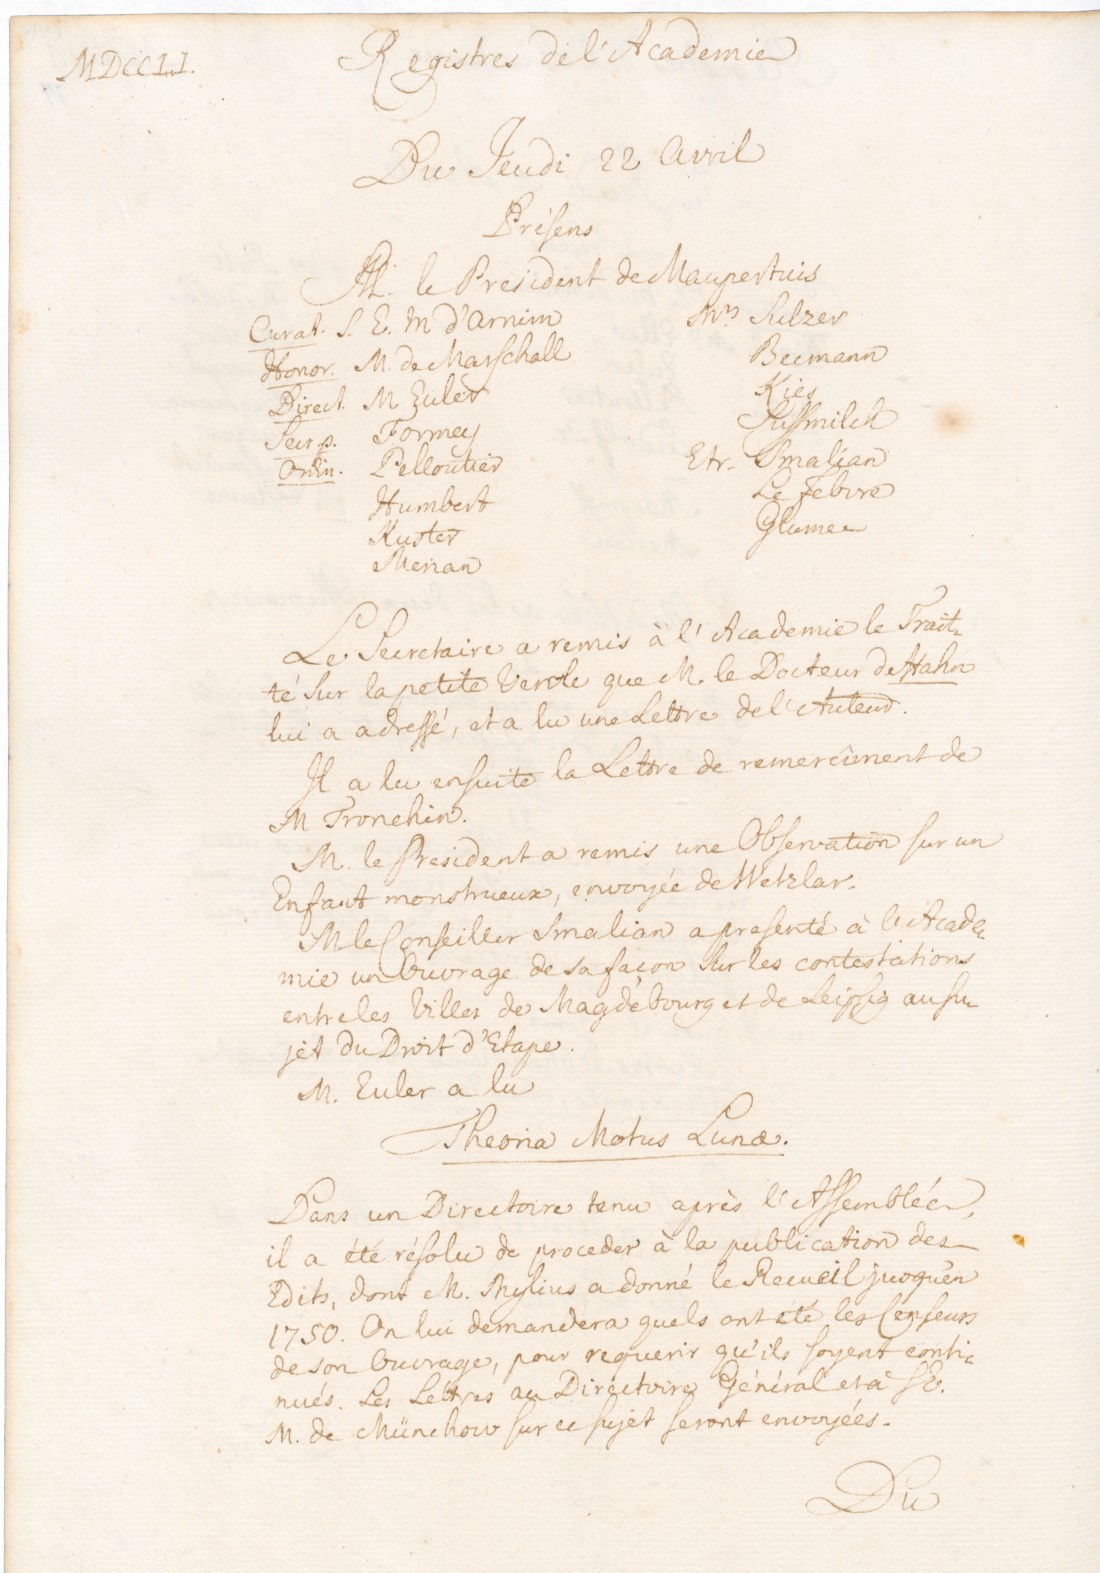 MDCCLI.
Registres de l'Academie
Du Jeudi 22 Avril
Présens
M. le President de Maupertuis
Curat. S. E. M d'Arnim
Honor. M. de Marschall
Direct. M Euler
Secr. p. Formey
Ordin. Pelloutier
Humbert
Kuster
Merian
Mrs Sulzer
Becmann
Kies
Sussmilch
Etr. Smalian
Le Febvre
Glume
Le Secretaire a remis à l'Academie le Trait-
té sur la petite Verole que M. le Docteur de Hahn
lui a adressé, et a lu une Lettre de l'Auteur.
Il a lu ensuite la Lettre de remercîment de
M Tronchin.
M. le President a remis une Observation sur un
Enfant monstrueux, envoyée de Wetzlar.
M le Conseiller Smalian a presenté à l'Acade-
mie un Ouvrage de sa façon sur les contestations
entre les Villes de Magdebourg et de Leipzig au su-
jet du Droit d'Etape.
M. Euler a lu
Theoria Motus Lunæ.
Dans un Directoire tenu après l'Assemblée,
il a été résolu de proceder à la publication des
Edits, dont M. Mylius a donné le Recueil jusqu'en
1750. On lui demandera quels ont eté les Censeurs
de son Ouvrage, pour requerir qu'ils soyent conti-
nués. Les Lettres au Directoire Général et à S. E.
M. de Münchow sur ce sujet seront envoyées.
Du